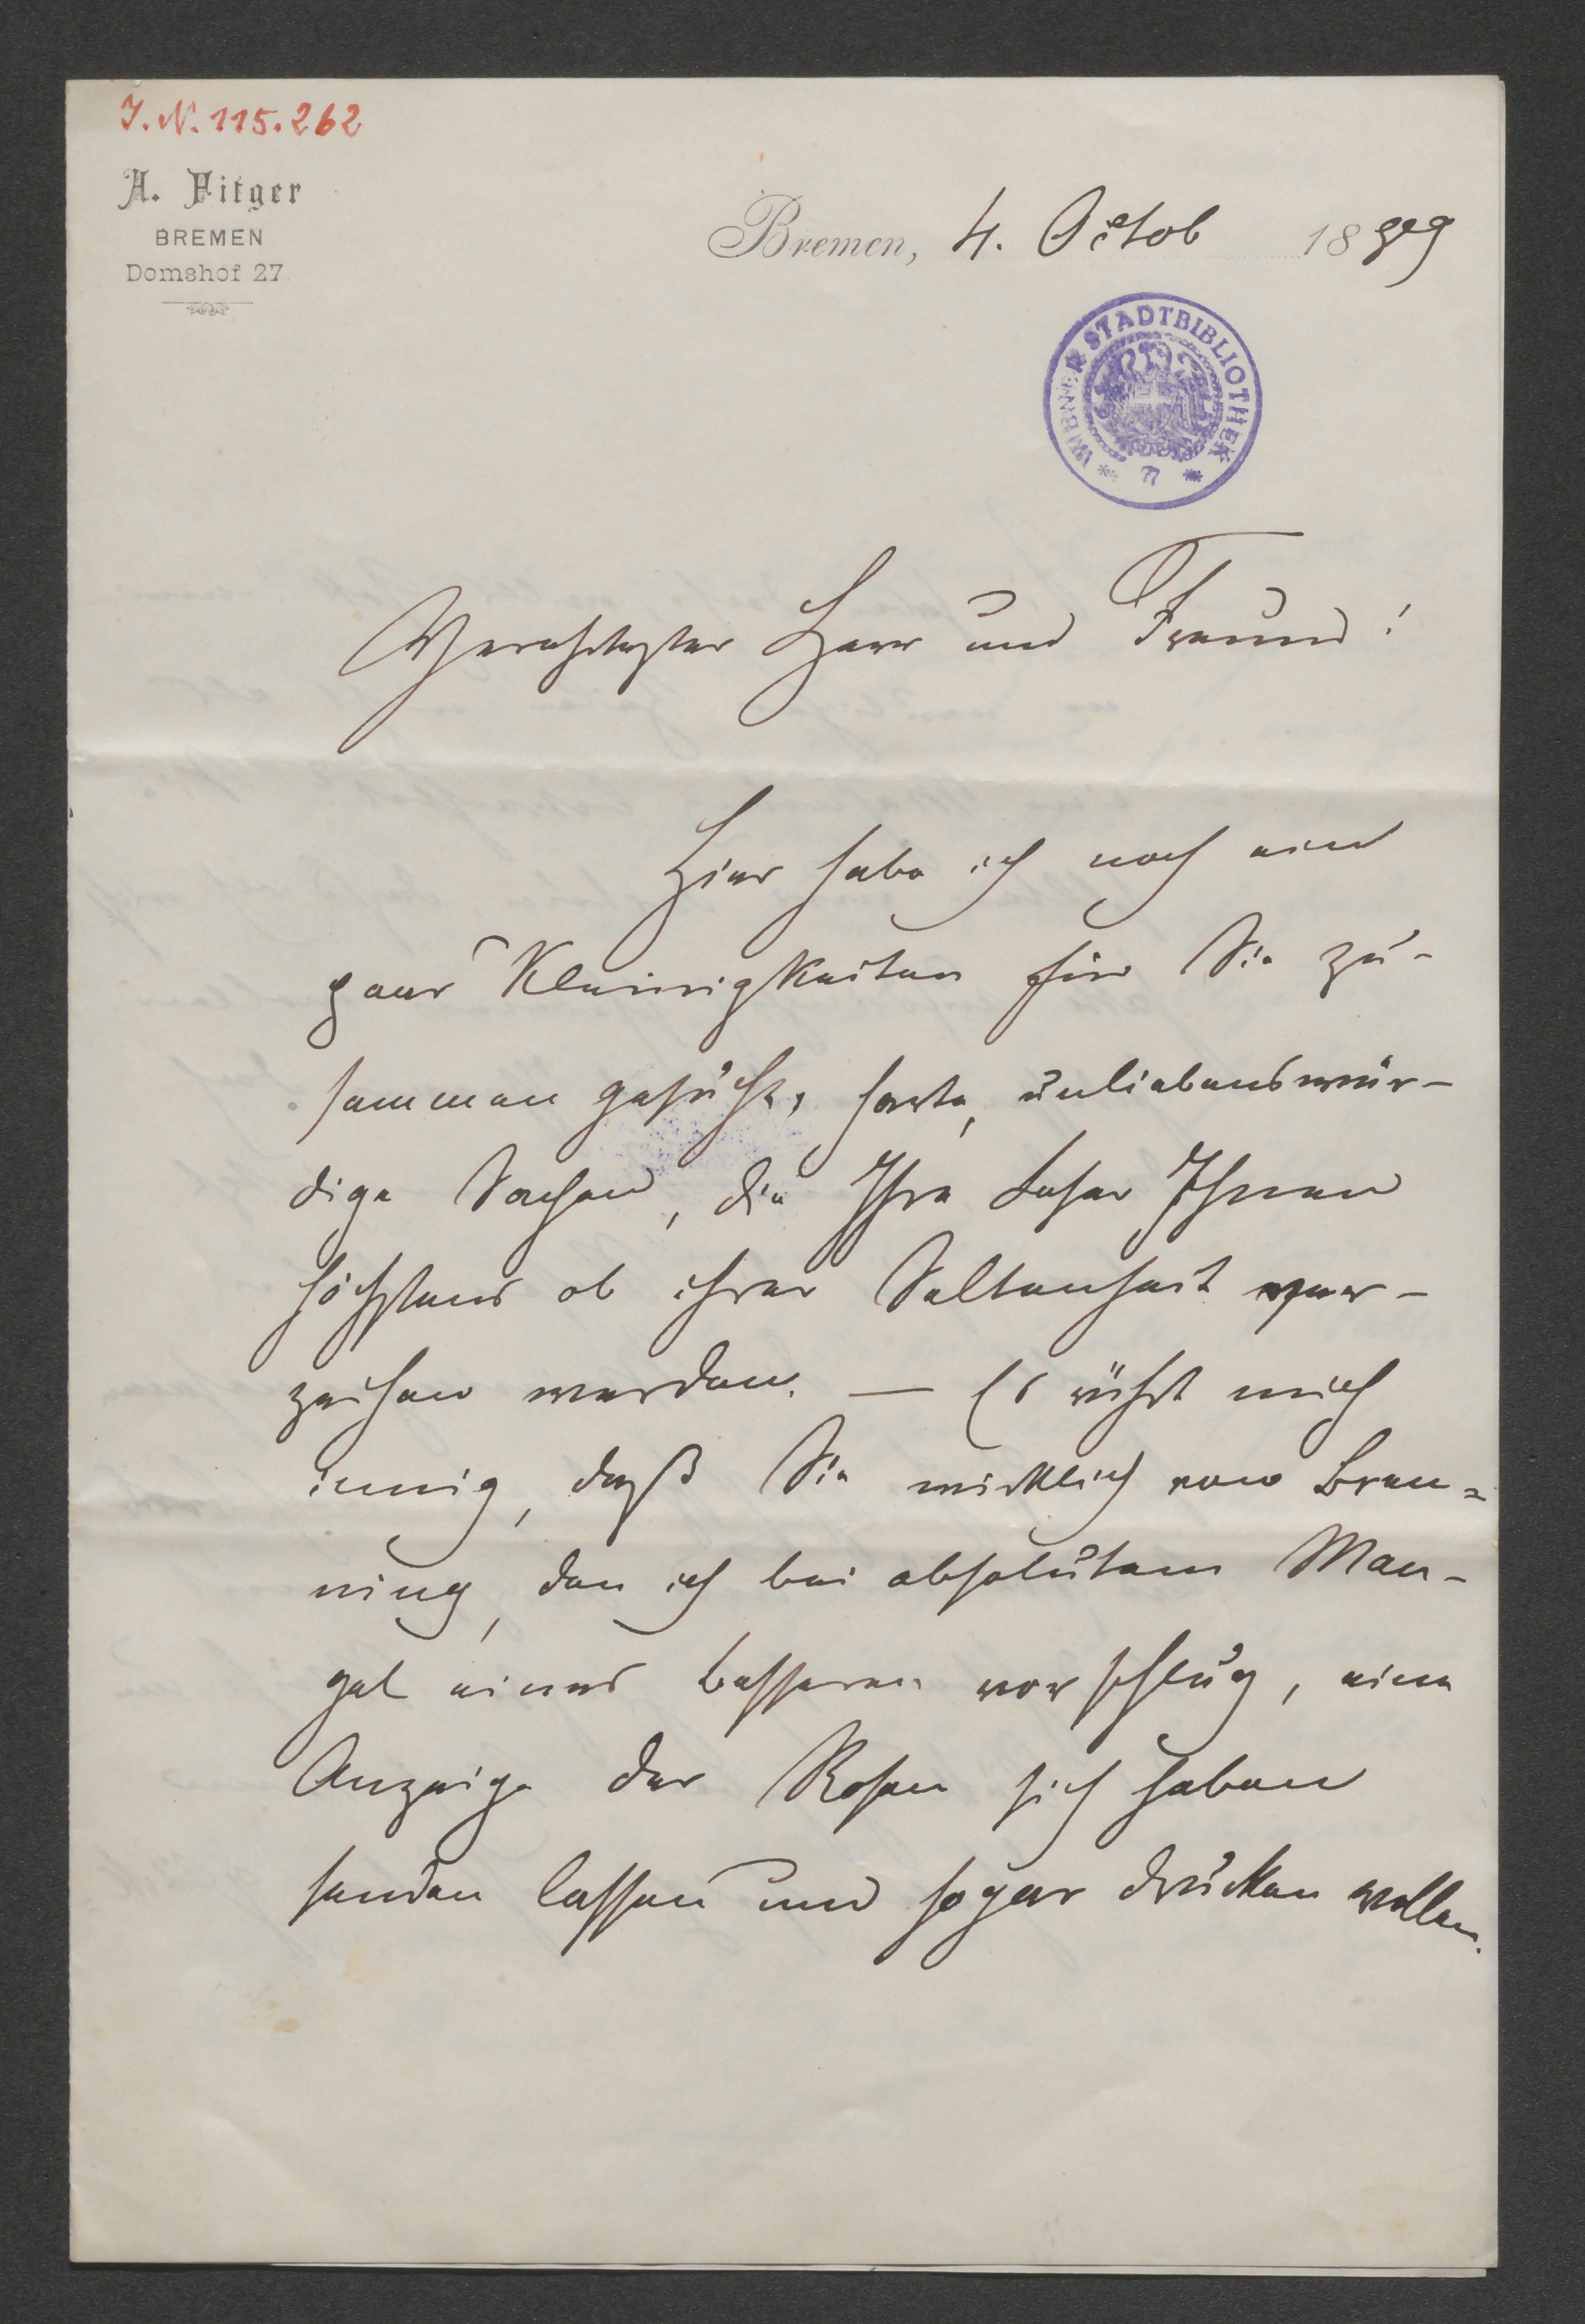 J. N. 115.262
A. Fitger
BREMEN
Domshof 27
Bremen, 4. Octob 1889
WIENER STADTBIBLIOTHEK
Verehrtester Herr und Freund!
Hier habe ich noch ein
paar Kleinigkeiten für Sie zu-
sammen gesucht, harte, unliebenswür-
dige Sachen, die Ihre Leser Ihnen
höchstens ob ihrer Seltenheit ver-
zeihen werden. — Es rührt mich
innig, daß Sie wirklich von Bren-
ning, den ich bei absolutem Man-
gel eines besseren vorschlug, eine
Anzeige der Rosen sich haben
senden lassen und sogar drucken wollen.